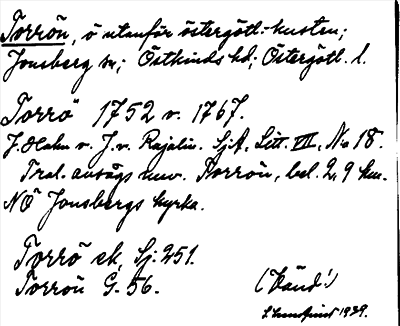 Torrön, ö utanför östergötl. kusten;
Jonsberg sn; Östkinds hd; Östergötl. l.
Torrö 1752 v. 1767.
J. Hahn v. J. v. Rajalin. SjA, Litt. VII, No 18.
Trol. avsågs nuv. Torrön, bel. 2,9 km.
NÖ Jonsbergs kyrka.
Torrö ek, Sj. 251.
Torrön G. 56.
(Känd!)
S. Lundqvist 1939.